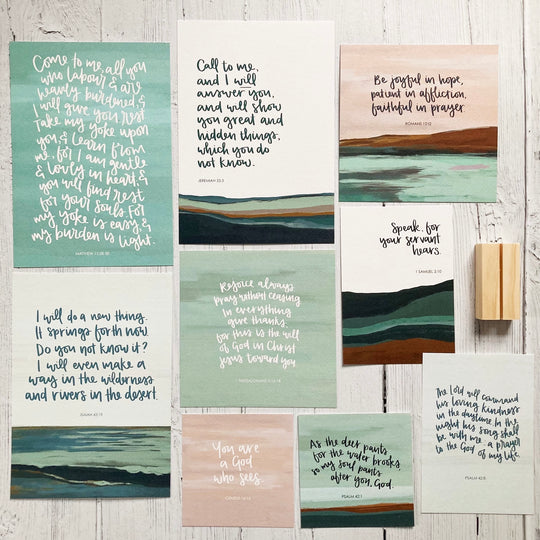 Come to me, all you
who labour & are
heavily burdened, &
I will give you rest
Take my yoke upon
you & learn from
me, for I am gentle
& lowly in heart, &
you will find rest
for your souls. For
my yoke is easy, &
my burden is light.
MATTHEW 11:28-30
Call to me,
and I will
answer you,
and will show
you great and
hidden things,
which you do
not know.
JEREMIAH 33:3
Be joyful in hope,
patient in affliction,
faithful in prayer.
ROMANS 12:12
Speak, for
your servant
hears.
1 SAMUEL 3:10
I will do a new thing.
It springs forth now.
Do you not know it?
I will even make a
way in the wilderness
and rivers in the desert.
ISAIAH 43:19
Rejoice always
pray without ceasing
in everything
give thanks,
for this is the will
of God in Christ
Jesus toward you
THESSALONIANS 5:16-18
You are
a God
who sees.
GENESIS 16:13
As the deer pants
for the water brooks,
so my soul pants
after you, God.
PSALM 42:1
The Lord will command
his loving kindness
in the daytime. In the
night his song shall
be with me: a prayer
to the God of my life.
PSALM 42:8